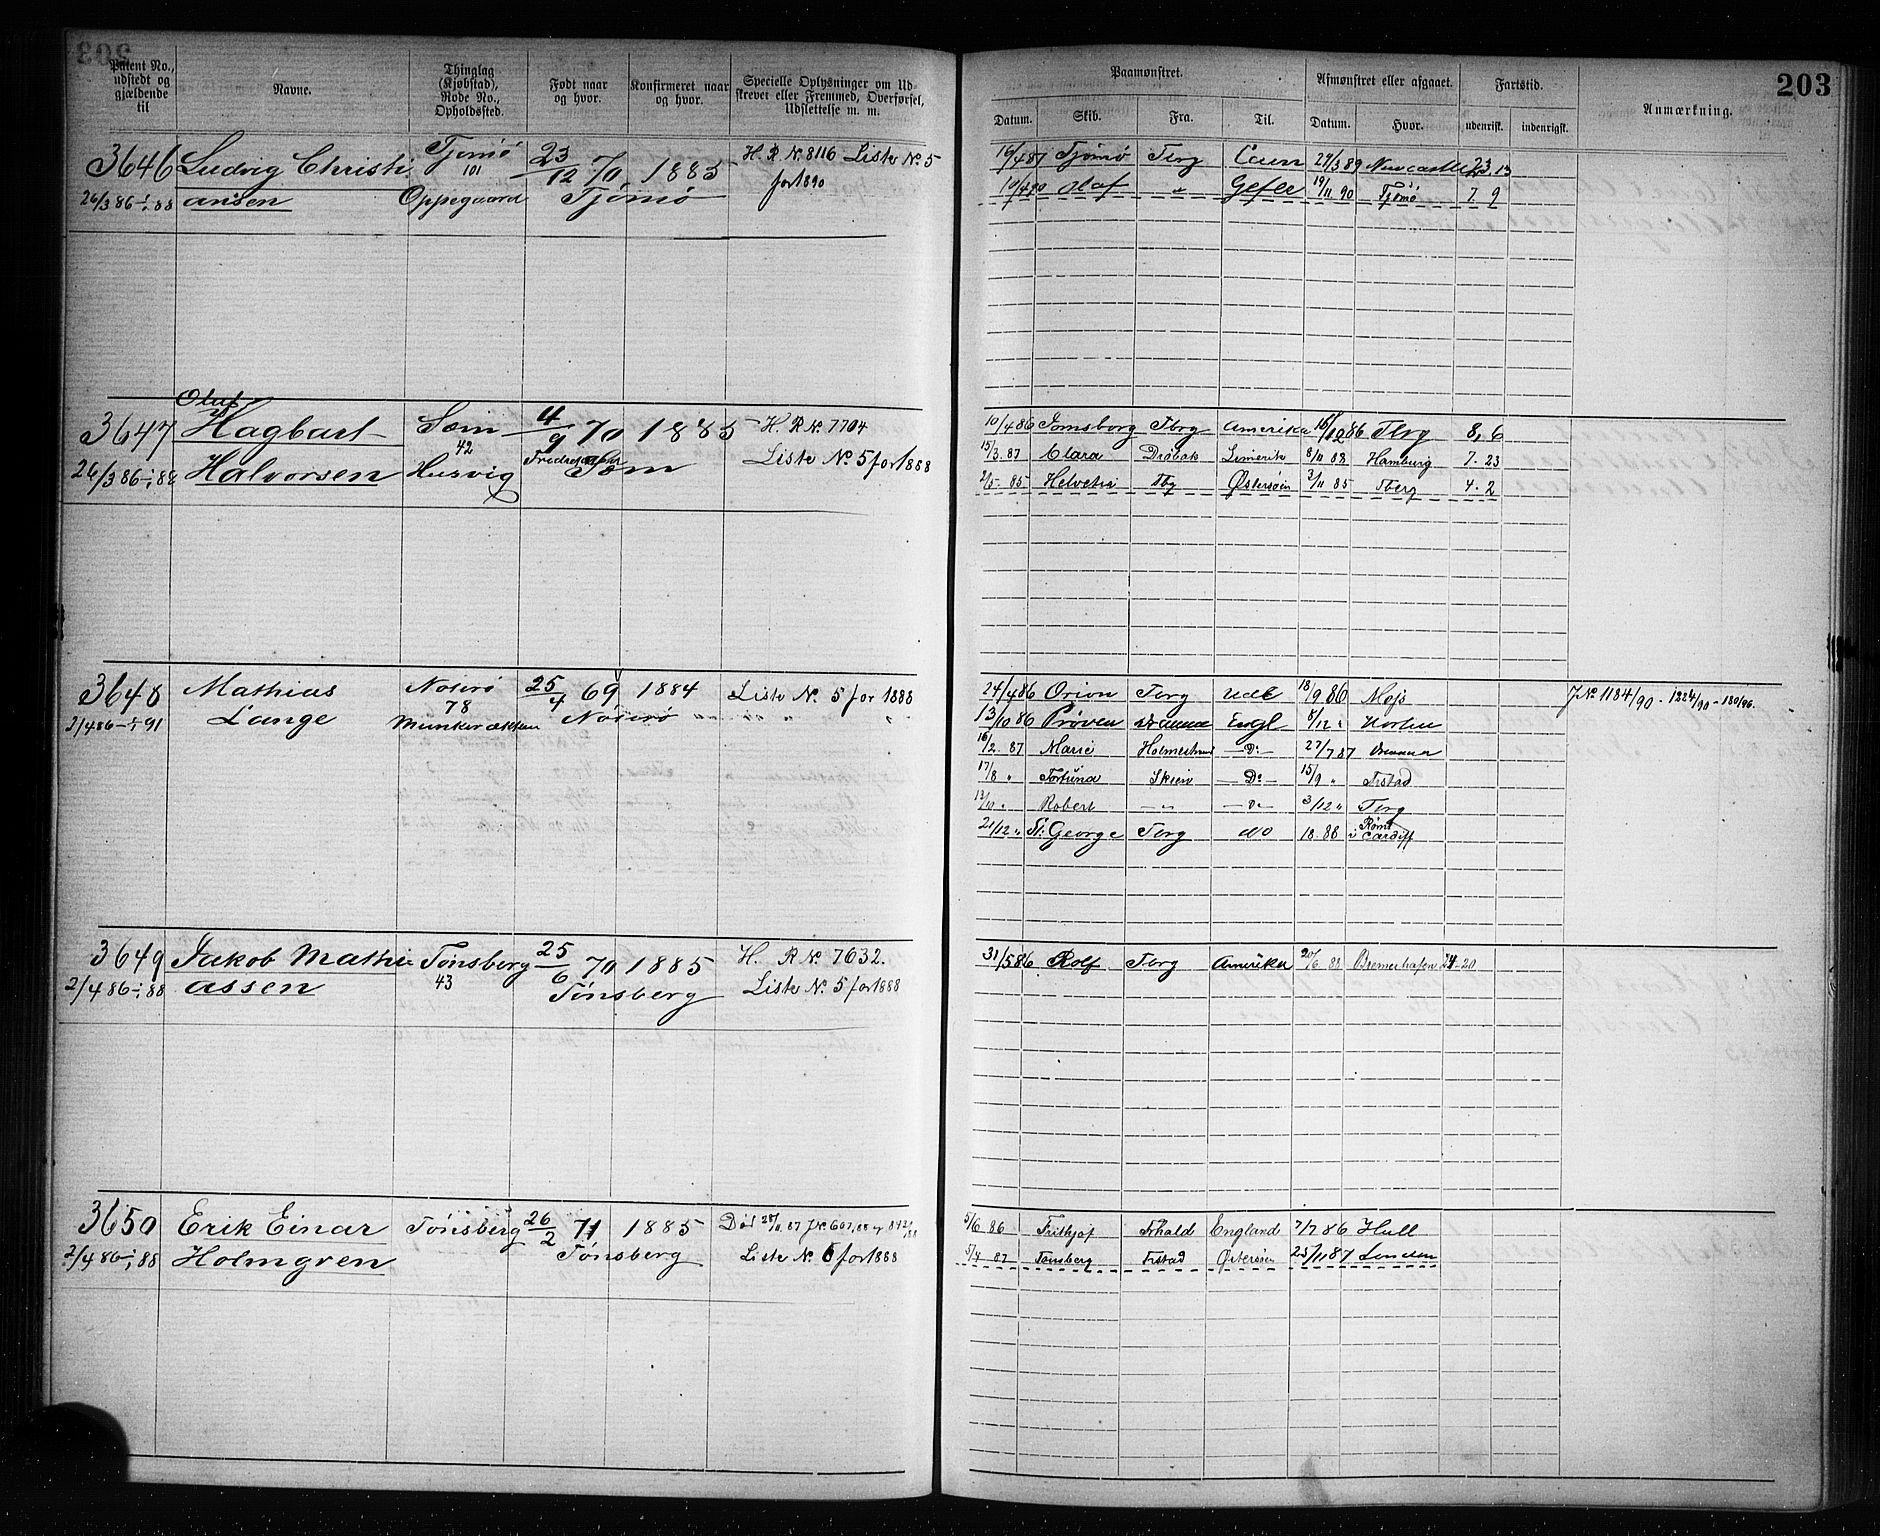 203
Patent No., udstedt og gjældende til
Navne.
Thinglag (Kjøbstad), Rode No., Opholdssted.
Født naar og hvor.
Konfirmeret naar og hvor.
Specielle Oplysninger om Udskrevet eller Fremmed, Overførsel, Udslettelse m. m.
Paamønstret.
Afmønstret eller afgaaet.
Fartstid.
Anmærkning.
Datum. Skib. Fra. Til. Datum. Hvor. udenrigsk. indenrigsk.
3646 Ludvig Christi Tjømø 23/12 70 1885 H. R No. 8116 Liste No. 5
101
26/3 86 – 1/1 88 ansen Oppegaard Tjømø for 1890
19/4 87 Tjømø Tbrg Caen 29/3 89 Newcastle 23 13
10/4 90 Olaf " Gefle 19/11 90 Tjømø 7. 9
Oluf
3647 Hagbart Sæm 4/9 70 1885 H. R No. 7704
42
26/3 86 – 1/1 88 Halvorsen Husvig Sæm Liste No. 5 for 1888
10/4 86 Jomsborg Tbrg Amerika 16/12 86 Tbrg 8, 6
15/3. 87 Clara Drøbak Limerik 8/11 88 Hamburg 7. 23
2/5. 85 Helvetia Tbg Østersøen 3/11 85 Tberg 4. 2
3648 Mathias Nøterø 25/4 69 1884 Liste No. 5 for 1888
78
2/4 86 – 1/1 91 Lange Munkerækken Nøterø
24/4 86 Orion Tbrg Udl 18/9 86 Moss J No 1184/90 - 1224/90 - 180/96.
13/10 86 Prøven Dramme Engl 8/12 " Horten
16/2. 87 Marie Holmestrand Do 27/7 87 Drammen
17/8 " Fortuna Skien Do 15/9 " Frstad
13/10 " Robert " Do 3/12 " Tbrg
21/12 " St. George Tbrg do 18. 88 Rømt i Cardiff
3649 Jakob Mathi Tønsberg 25/6 70 1885 H. R No. 7632.
43
2/4 86 – 1/1 88 assen Tønsberg Liste No. 5 for 1888
31/5 86 Rolf Tbrg Amerika 20/6. 88 Bremerhafen 24 - 20
3650 Erik Einar Tønsberg 26/2 71 1885 Død 25/11 87 J No 607/88 og 842/88
2/4 86 – 1/1 88 Holmgren Tønsberg Liste No. 5 for 1888
5/6 86 Frithjof Frhald England 7/7 86 Hull
5/4 87 Tønsberg Frstad Østersøen 25/11 87 London